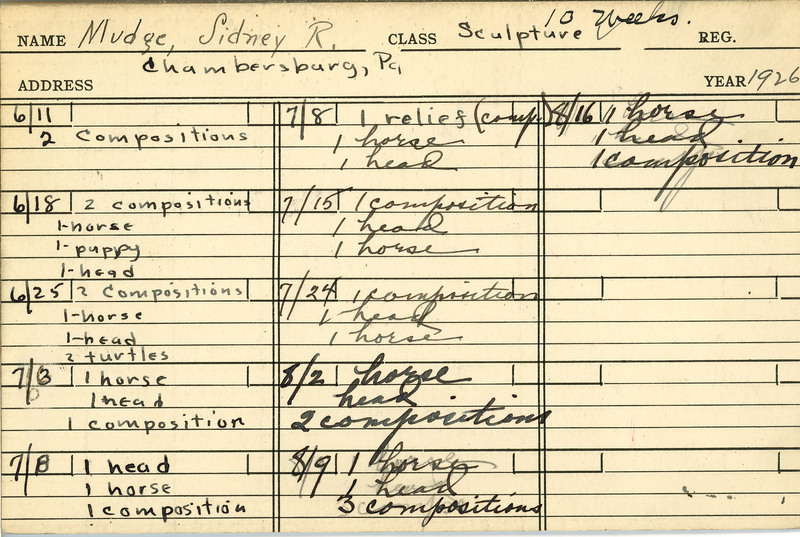 10 Weeks.
NAME Mudge, Sidney R. CLASS Sculpture REG.
Chambersburg, Pa,
ADDRESS YEAR 1926
6/11
2 Compositions
6/18 2 compositions
1-horse
1-puppy
1-head
6/25 2 Compositions
1-horse
1-head
2 turtles
7/3 1 horse
1 head
1 composition
7/8 1 head
1 horse
1 composition
7/8 1 relief (comp.)
1 horse
1 head
7/15 1 composition
1 head
1 horse
7/24 1 composition
1 head
1 horse
8/2 horse
head
2 compositions
8/9 1 horse
1 head
3 compositions
8/16 1 horse
1 head
1 composition